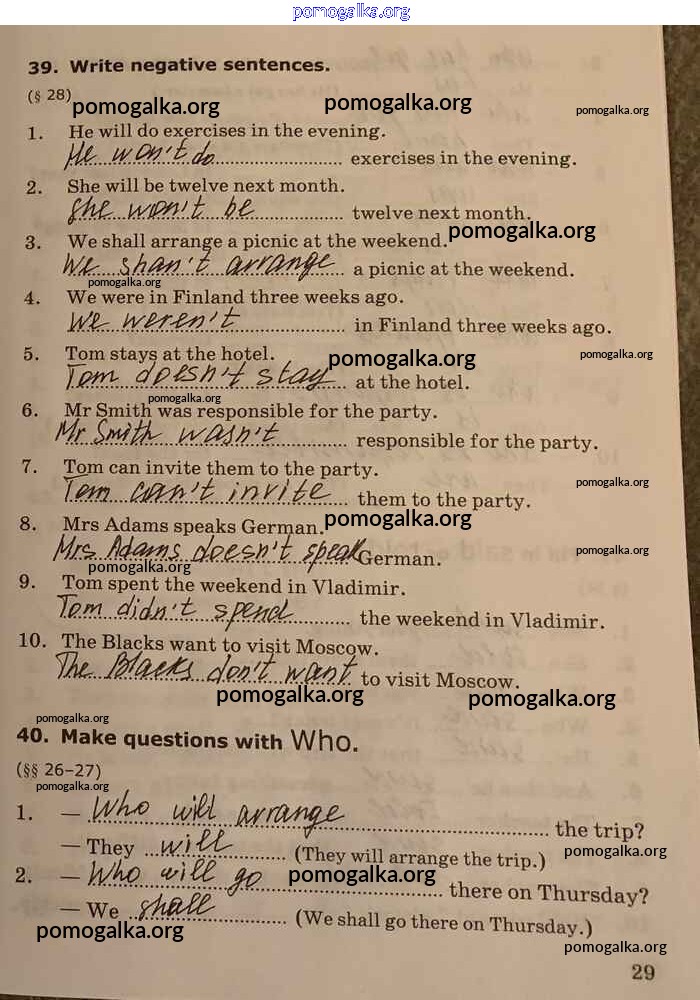 pomogalka.org
39. Write negative sentences.
(§ 28)
pomogalka.org
pomogalka.org
pomogalka.org
1. He will do exercises in the evening.
He won't do exercises in the evening.
2. She will be twelve next month.
She won't be twelve next month.
3. We shall arrange a picnic at the weekend.
pomogalka.org
We shan't arrange a picnic at the weekend.
pomogalka.org
4. We were in Finland three weeks ago.
We weren't in Finland three weeks ago.
5. Tom stays at the hotel.
pomogalka.org
pomogalka.org
Tom doesn't stay at the hotel.
pomogalka.org
6. Mr Smith was responsible for the party.
Mr Smith wasn't responsible for the party.
7. Tom can invite them to the party.
pomogalka.org
Tom can't invite them to the party.
8. Mrs Adams speaks German.
pomogalka.org
Mrs Adams doesn't speak German.
pomogalka.org
pomogalka.org
9. Tom spent the weekend in Vladimir.
Tom didn't spend the weekend in Vladimir.
10. The Blacks want to visit Moscow.
The Blacks don't want to visit Moscow.
pomogalka.org
pomogalka.org
pomogalka.org
40. Make questions with Who.
(§§ 26–27)
pomogalka.org
1. — Who will arrange the trip?
— They will (They will arrange the trip.)
pomogalka.org
2. — Who will go there on Thursday?
pomogalka.org
— We shall (We shall go there on Thursday.)
pomogalka.org
pomogalka.org
29